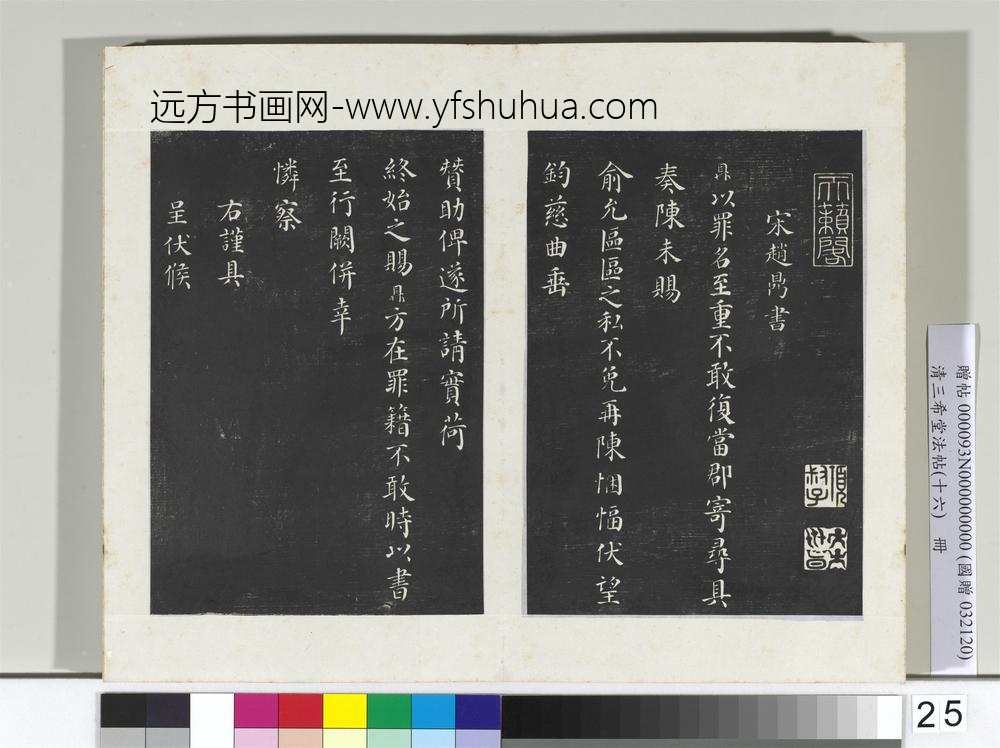 远方书画网-www.yfshuhua.com
天籟閣
宋趙鼎書
鼎以罪名至重不敢復當郡寄尋具
奏陳未賜
俞允區區之私不免再陳悃愊伏望
鈞慈曲垂
贊助俾遂所請實荷
終始之賜鼎方在罪籍不敢時以書
至行闕併幸
憐察
右謹具
呈伏候
贈帖 000093N000000000 (國贈 032120)
清三希堂法帖(十六) 冊
25